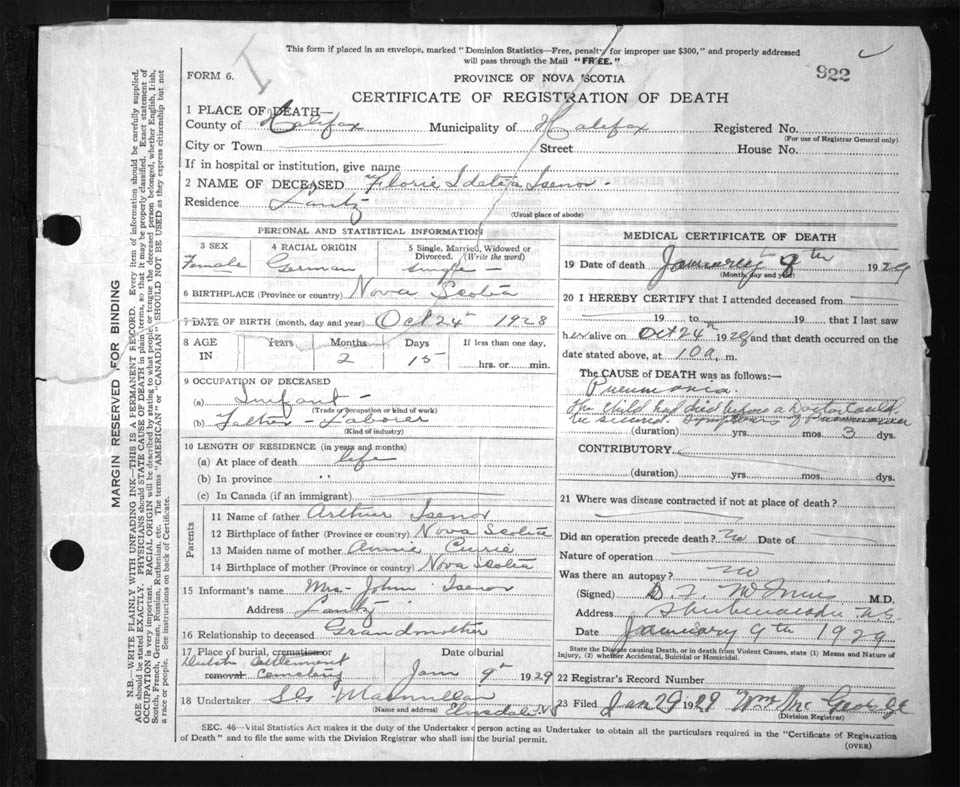 This form if placed in an envelope, marked "Dominion Statistics—Free, penalty for improper use $300," and properly addressed
will pass through the Mail "FREE."
922
FORM 6.
PROVINCE OF NOVA SCOTIA
CERTIFICATE OF REGISTRATION OF DEATH
1 PLACE OF DEATH
County of Halifax Municipality of Halifax Registered No.
(For use of Registrar General only)
City or Town Street House No.
If in hospital or institution, give name
2 NAME OF DECEASED Florie Isenor
Residence Lantz
(Usual place of abode)
PERSONAL AND STATISTICAL INFORMATION
3 SEX 4 RACIAL ORIGIN 5 Single, Married, Widowed or
Divorced. (Write the word)
Female German single
6 BIRTHPLACE (Province or country) Nova Scotia
7 DATE OF BIRTH (month, day and year) Oct 24th 1928
8 AGE IN Years Months Days If less than one day,
2 15 hrs. or min.
9 OCCUPATION OF DECEASED
(a) Infant
(Trade or occupation or kind of work)
(b) Father - Laborer
(Kind of industry)
10 LENGTH OF RESIDENCE (in years and months)
(a) At place of death life
(b) In province "
(c) In Canada (if an immigrant)
Parents
11 Name of father Arthur Isenor
12 Birthplace of father (Province or country) Nova Scotia
13 Maiden name of mother Annie Curie
14 Birthplace of mother (Province or country) Nova Scotia
15 Informant's name Mrs John Isenor
Address Lantz
16 Relationship to deceased Grandmother
17 Place of burial, cremation or Date of burial
Dutch Settlement
removal Cemetery Jan 9th 1929
18 Undertaker Macmillan
(Name and address) Elmsdale N.S
MEDICAL CERTIFICATE OF DEATH
19 Date of death January 8th 1929
(Month, day and year)
20 I HEREBY CERTIFY that I attended deceased from
19 to 19 that I last saw
her alive on Oct 24th 1928 and that death occurred on the
date stated above, at 10 a. m.
The CAUSE OF DEATH was as follows:—
Pneumonia.
The child had died before a Doctor could
be secured. Symptoms of pneumonia
(duration) yrs. mos. 3 dys.
CONTRIBUTORY
(duration) yrs. mos. dys.
21 Where was disease contracted if not at place of death?
Did an operation precede death? No Date of
Nature of operation
Was there an autopsy? no
(Signed) M.D.
Address Shubenacadie N.S.
Date January 9th 1929
State the Disease causing Death, or in death from Violent Causes, state (1) Means and Nature of
Injury, (2) whether Accidental, Suicidal or Homicidal.
22 Registrar's Record Number
23 Filed Jan 29 1929 Wm
(Division Registrar)
SEC. 46—Vital Statistics Act makes it the duty of the Undertaker or person acting as Undertaker to obtain all the particulars required in the "Certificate of Registration
of Death" and to file the same with the Division Registrar who shall issue the burial permit.
(OVER)
MARGIN RESERVED FOR BINDING
N.B.—WRITE PLAINLY WITH UNFADING INK—THIS IS A PERMANENT RECORD. Every item of information should be carefully supplied.
AGE should be stated EXACTLY. PHYSICIANS should STATE CAUSE OF DEATH in plain terms, so that it may be properly classified. Exact statement of
OCCUPATION is very important. RACIAL ORIGIN will be described by stating to what people or tongue the deceased person belonged, whether English, Irish,
Scotch, French, German, Russian, Ruthenian, etc. The terms "AMERICAN" or "CANADIAN" SHOULD NOT BE USED as they express citizenship but not
a race or people. See instructions on back of Certificate.